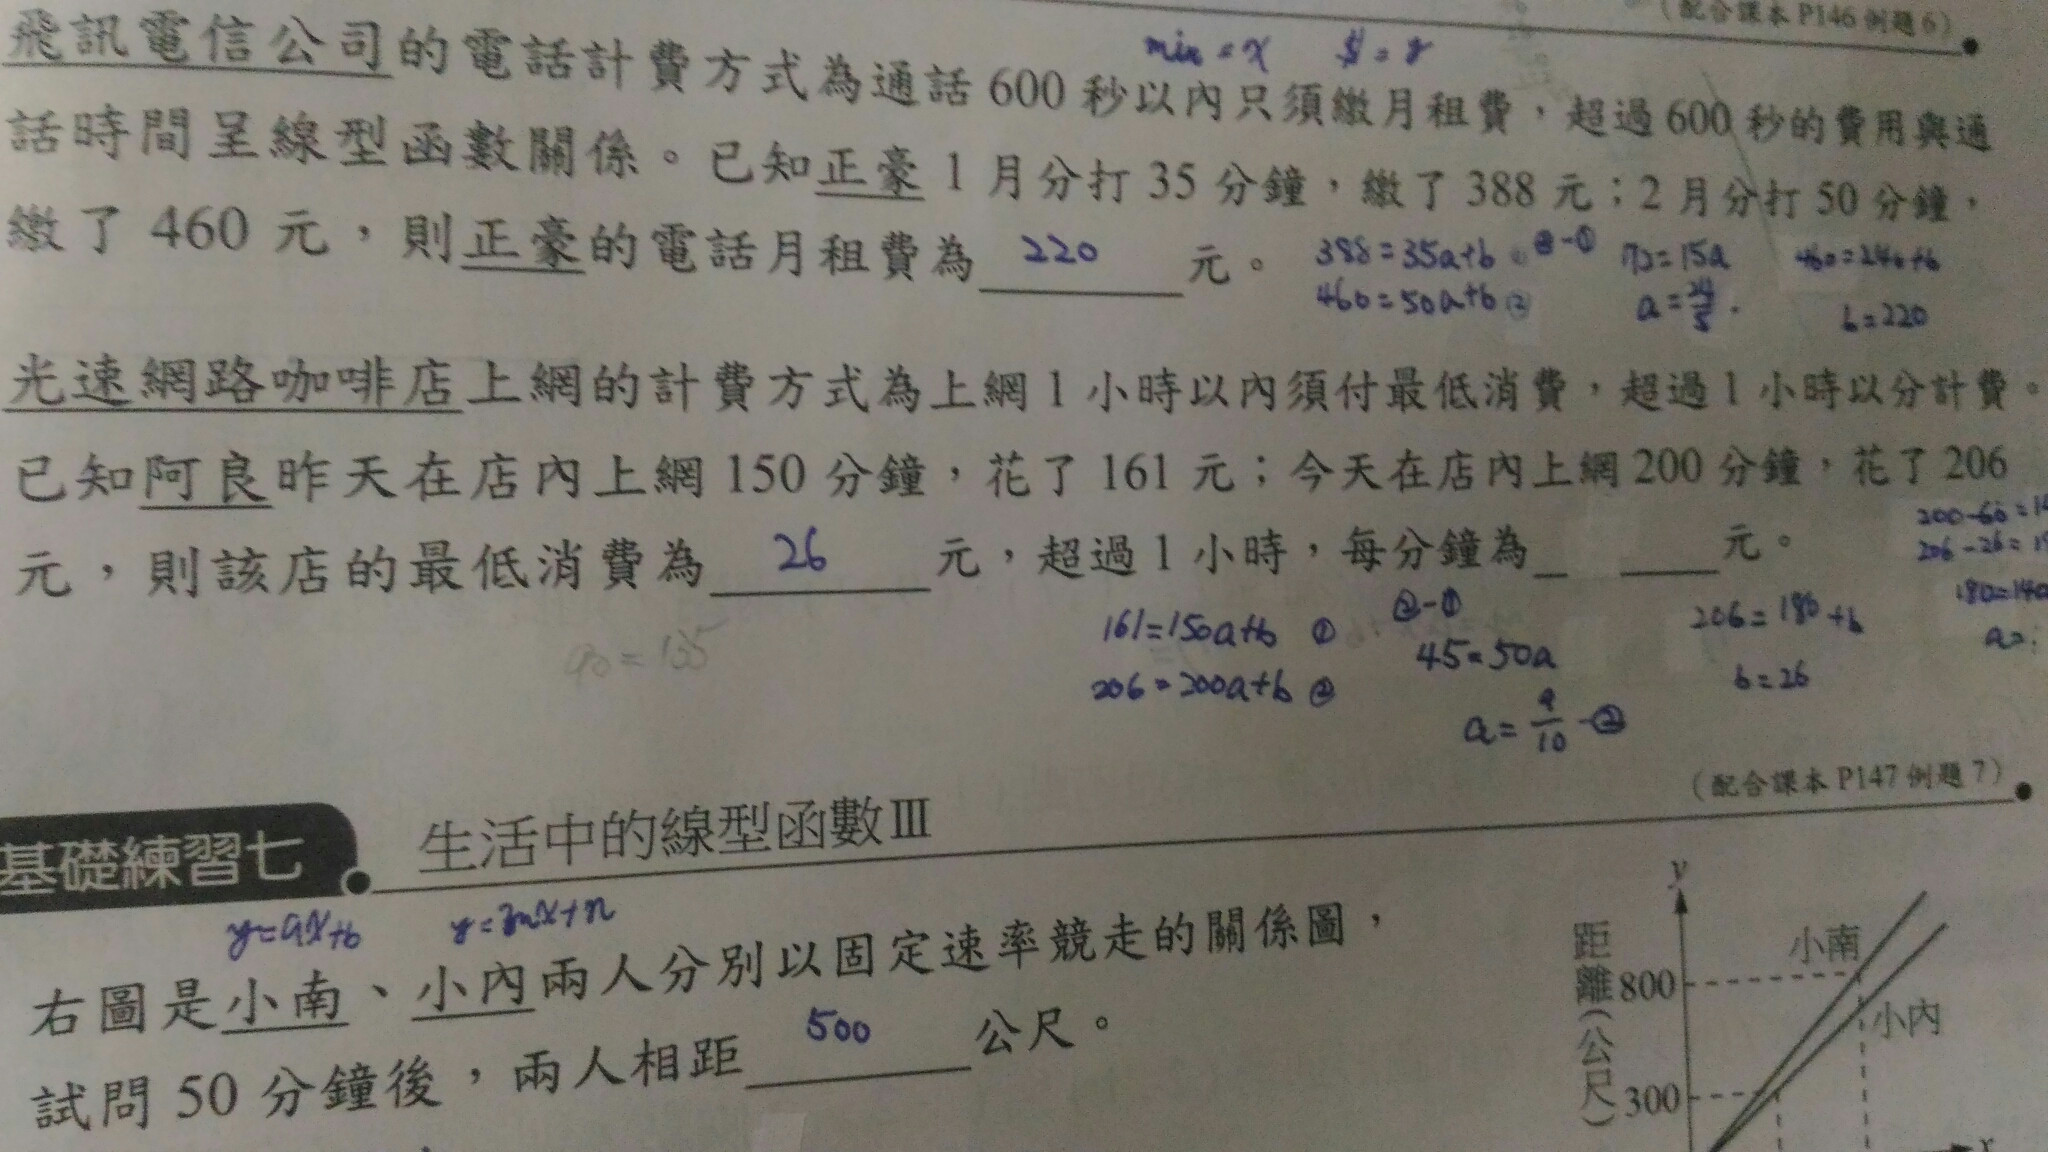 (配合課本 P146 例題 6)
min = x $ = y
飛訊電信公司的電話計費方式為通話 600 秒以內只須繳月租費，超過 600 秒的費用與通
話時間呈線型函數關係。已知正豪 1 月分打 35 分鐘，繳了 388 元；2 月分打 50 分鐘，
繳了 460 元，則正豪的電話月租費為 220 元。
388=35a+b ②-① 72=15a 460=240+b
460=50a+b ② a=24/5 . b=220
光速網路咖啡店上網的計費方式為上網 1 小時以內須付最低消費，超過 1 小時以分計費。
已知阿良昨天在店內上網 150 分鐘，花了 161 元；今天在店內上網 200 分鐘，花了 206
元，則該店的最低消費為 26 元，超過 1 小時，每分鐘為 元。
200-60=14
206-26=18
180=140
a=
90=135
161=150a+b ① ②-① 206=180+b
206=200a+b ② 45=50a b=26
a=9/10-②
(配合課本 P147 例題 7)
基礎練習七 生活中的線型函數III
y=ax+b y=mx+n
右圖是小南、小內兩人分別以固定速率競走的關係圖，
試問 50 分鐘後，兩人相距 500 公尺。
y
距離(公尺)
小南
800
小內
300
x